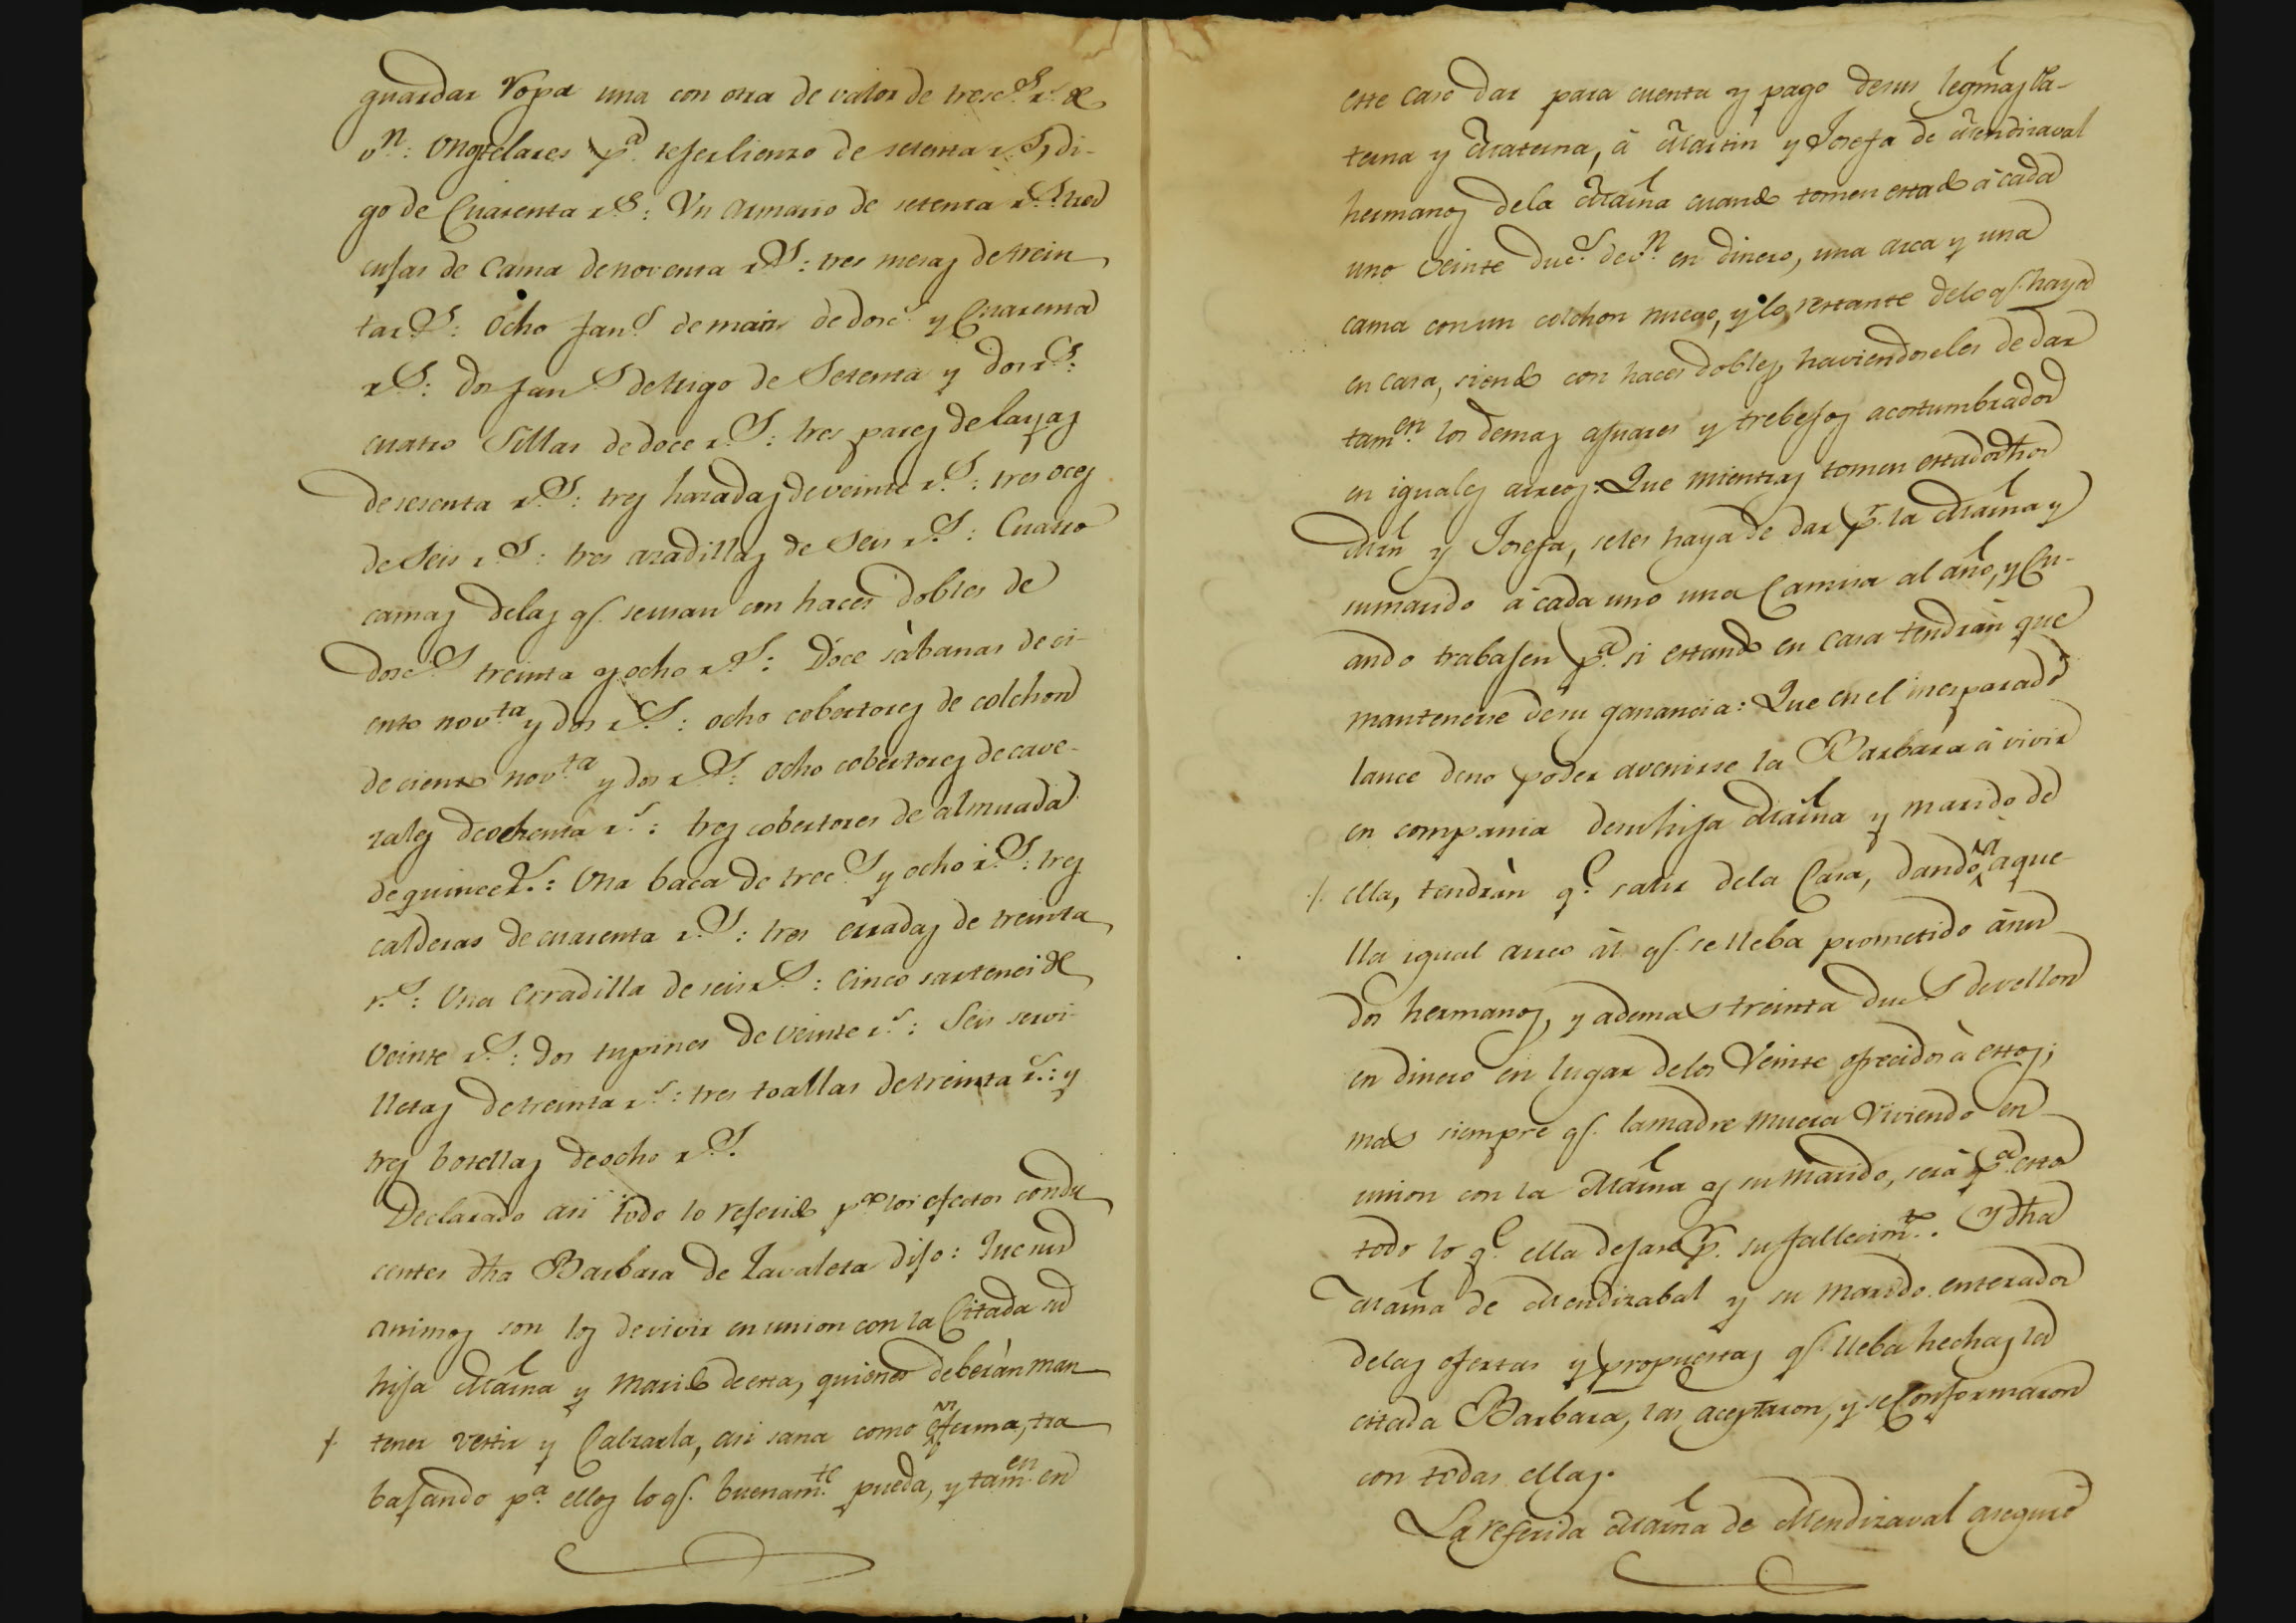 guardar Ropa una con otra de valor de tresc.s r.s de
v.n: Unos telares p.a tejer lienzo de setenta r.s, di-
go de Cuarenta r.s: Un Armario de setenta r.s: tres
cujas de Cama de noventa r.s: tres mesas de trein
ta r.s: Ocho fan.s de maiz de dosc.s y Cuarenta
r.s: dos fan.s de trigo de Setenta y dos r.s:
cuatro Sillas de doce r.s: tres pares de layas
de sesenta r.s: tres haradas de veinte r.s: tres oces
de Seis r.s: tres azadillas de Seis r.s: Cuatro
camas delas q.e se usan con haces dobles de
dosc.s treinta y ocho r.s: Doce sàbanas de ci-
ento nov.ta y dos r.s: ocho cobertores de colchon
de ciento nov.ta y dos r.s: ocho cobertores de cave-
zales de ochenta r.s: tres cobertores de almuada
de quince r.s: Una baca de trec.s y ocho r.s: tres
calderas de cuarenta r.s: tres erradas de treinta
r.s: Una Erradilla de seis r.s: Cinco sartenes de
Veinte r.s: dos tupines de Veinte r.s: Seis servi-
lletas de treinta r.s: tres toallas de treinta r.s: y
tres botellas de ocho r.s.
Declarado asi todo lo referido p.a los efectos condu
centes dha Barbara de Zavaleta dijo: Que sus
animos son los de vivir en union con la Citada su
hija Maria y Marido de esta, quienes deberàn man
tener vestir y Calzarla, asi sana como enferma, tra
bajando p.a ellos lo q.e buenam.te pueda, y tam.en en
este caso dar para cuenta y pago de sus legmas Pa-
terna y Materna, à Martin y Josefa de Mendizaval
hermanos dela Maria cuando tomen estado à cada
uno Veinte duc.s de v.n en dinero, una arca y una
cama con un colchon nuevo, y lo restante delo q.e haya
en casa, siendo con haces dobles, haviendoseles de dar
tam.en los demas ajuares y trebejos acostumbrados
en iguales arreos: Que mientras tomen estado dhos
Mrn y Josefa, seles haya de dar p.r la Maria y
su marido à cada uno una Camisa al año, y Cu-
ando trabajen p.a si estando en Casa tendràn que
mantenerse de su ganancia: Que en el inesperado
lance de no poder avenirse la Barbara à vivir
en compania de su hija Maria y marido de
ella, tendràn q.e salir dela Casa, dando a aque-
lla igual arreo àl q.e se lleba prometido à sus
dos hermanos, y ademas treinta duc.s de vellon
en dinero en lugar delos Veinte ofrecidos à estos;
mas siempre q.e la madre muera Viviendo en
union con la Maria y su marido, serà p.a esta
todo lo q.e ella dejare p.r su fallecim.to. Y dha
Maria de Mendizabal y su marido enterados
delas ofertas y propuestas q.e lleba hechas la
citada Barbara, las aceptaron, y se Conformaron
con todas ellas.
La referida Maria de Mendizaval aseguró